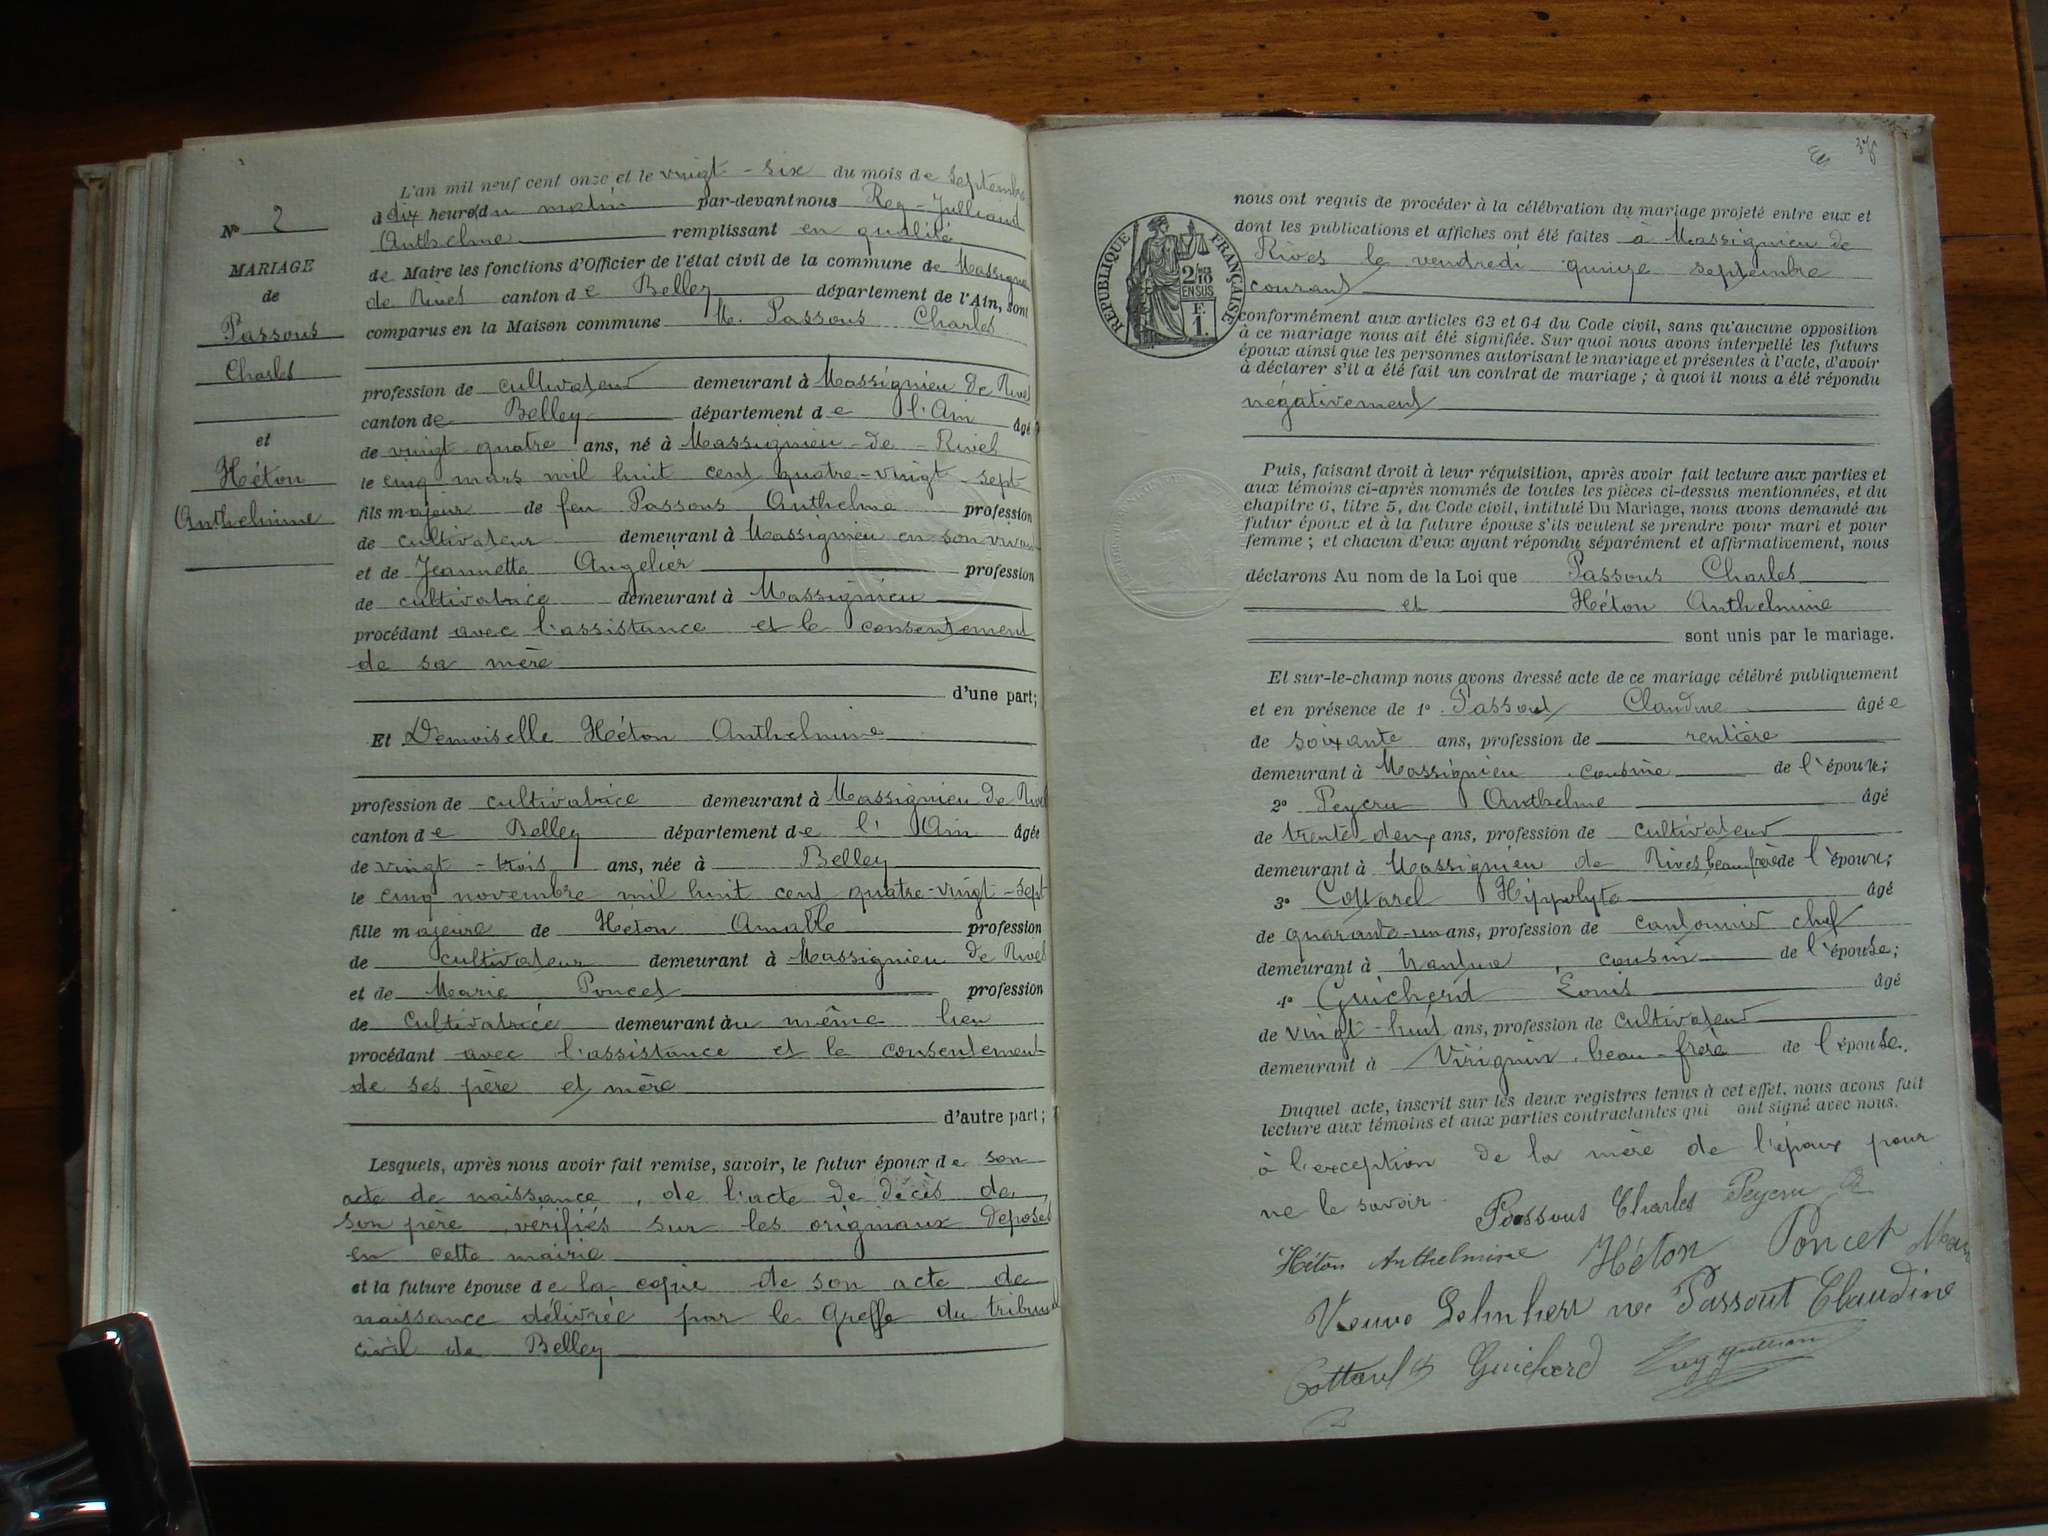 L'an mil neuf cent onze et le vingt-six du mois de septembre
à dix heures du matin par-devant nous Rey-Julliand
Anthelme remplissant en qualité
de Maire les fonctions d'Officier de l'état civil de la commune de Massignieu
de Rives canton de Belley département de l'Ain, sont
comparus en la Maison commune M. Passous Charles
profession de cultivateur demeurant à Massignieu de Rives
canton de Belley département de l'Ain âgé
de vingt quatre ans, né à Massignieu-de-Rives
le cinq mars mil huit cent quatre-vingt-sept
fils majeur de feu Passous Anthelme profession
de cultivateur demeurant à Massignieu en son vivant
et de Jeannette Angelier profession
de cultivatrice demeurant à Massignieu
procédant avec l'assistance et le consentement
de sa mère
d'une part;
Et Demoiselle Héton Anthelmine
profession de cultivatrice demeurant à Massignieu de Rives
canton de Belley département de l'Ain âgée
de vingt-trois ans, née à Belley
le cinq novembre mil huit cent quatre-vingt-sept
fille majeure de Héton Amable profession
de cultivateur demeurant à Massignieu de Rives
et de Marie Poncet profession
de cultivatrice demeurant au même lieu
procédant avec l'assistance et le consentement
de ses père et mère
d'autre part;
Lesquels, après nous avoir fait remise, savoir, le futur époux de son
acte de naissance, de l'acte de décès de
son père, vérifiés sur les originaux déposés
en cette mairie
et la future épouse de la copie de son acte de
naissance délivrée par le Greffe du tribunal
civil de Belley
N° 2
MARIAGE
de
Passous
Charles
et
Héton
Anthelmine
nous ont requis de procéder à la célébration du mariage projeté entre eux et
dont les publications et affiches ont été faites à Massignieu de
Rives le vendredi quinze septembre
courant
conformément aux articles 63 et 64 du Code civil, sans qu'aucune opposition
à ce mariage nous ait été signifiée. Sur quoi nous avons interpellé les futurs
époux ainsi que les personnes autorisant le mariage et présentes à l'acte, d'avoir
à déclarer s'il a été fait un contrat de mariage; à quoi il nous a été répondu
négativement
Puis, faisant droit à leur réquisition, après avoir fait lecture aux parties et
aux témoins ci-après nommés de toutes les pièces ci-dessus mentionnées, et du
chapitre 6, titre 5, du Code civil, intitulé Du Mariage, nous avons demandé au
futur époux et à la future épouse s'ils veulent se prendre pour mari et pour
femme; et chacun d'eux ayant répondu séparément et affirmativement, nous
déclarons Au nom de la Loi que Passous Charles
et Héton Anthelmine
sont unis par le mariage.
Et sur-le-champ nous avons dressé acte de ce mariage célébré publiquement
et en présence de 1° Passout Claudine âgée
de soixante ans, profession de rentière
demeurant à Massignieu, cousine de l'époux;
2° Peycru Anthelme âgé
de trente-deux ans, profession de cultivateur
demeurant à Massignieu de Rives, beau frère de l'époux;
3° Cottarel Hippolyte âgé
de quarante-un ans, profession de cantonnier chef
demeurant à Nantua, cousin de l'épouse;
4° Guicherd Louis âgé
de vingt-huit ans, profession de cultivateur
demeurant à Virignin, beau-frère de l'épouse.
Duquel acte, inscrit sur les deux registres tenus à cet effet, nous avons fait
lecture aux témoins et aux parties contractantes qui ont signé avec nous.
à l'exception de la mère de l'époux pour
ne le savoir Passous Charles Peycru
Héton Anthelmine Héton Poncet
Veuve née Passout Claudine
Guicherd
RÉPUBLIQUE FRANÇAISE
2/10 EN SUS
F. 1.